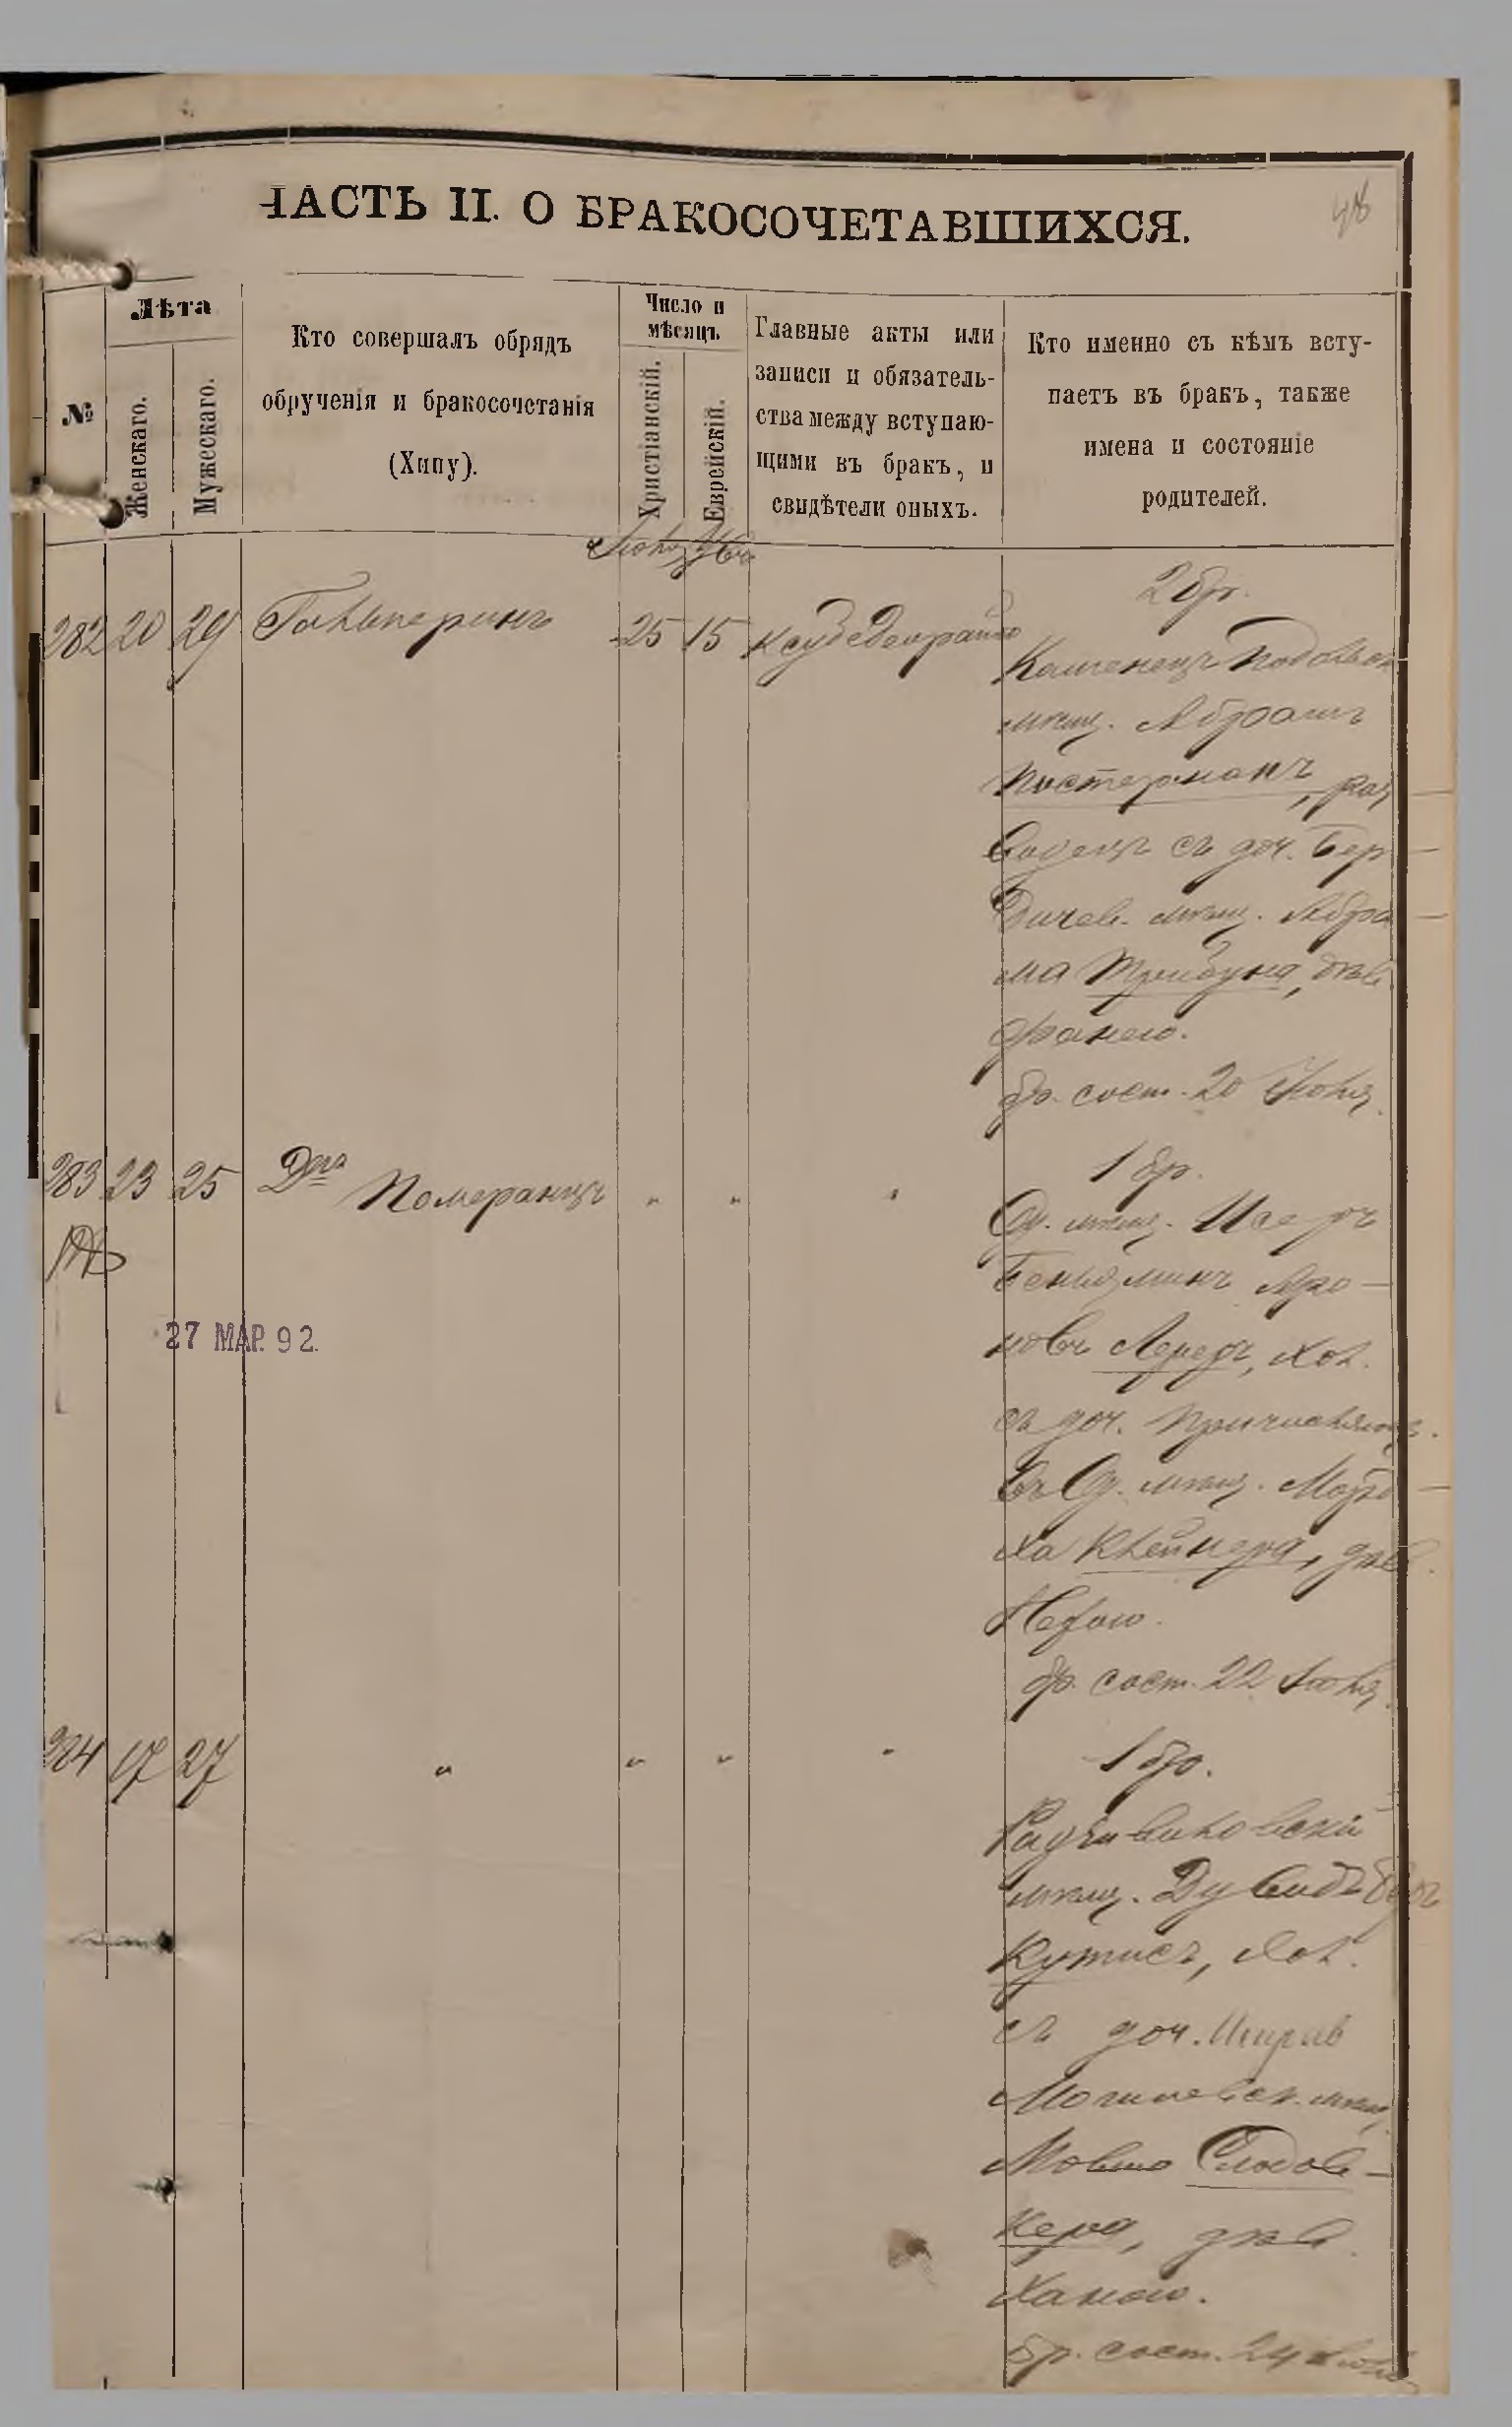 48
ЧАСТЬ II. О БРАКОСОЧЕТАВШИХСЯ.
№
Лѣта
Женскаго.
Мужескаго.
Кто совершалъ обрядъ
обрученія и бракосочетанія
(Хипу).
Число и
мѣсяцъ
Христіанскій.
Еврейскій.
Главные акты или
записи и обязатель-
ства между вступаю-
щими въ бракъ, и
свидѣтели оныхъ.
Кто именно съ кѣмъ всту-
паетъ въ бракъ, также
имена и состояніе
родителей.
282 20 29 Гальперинъ 25 15
2 бр.
Каменецъ Подольск
мѣщ. Абрамъ
Постернакъ, раз
водецъ съ доч. Бер
дичев. мѣщ. Абра
ма Трибуна, дѣв
Фанею.
бр. сост. 20 Іюня
283 23 25 Д-ръ Померанцъ " " "
1 бр.
Од. мѣщ. Исеръ
Беньяминъ Аро-
новъ Лереръ, хол.
съ доч. причисляющ.
въ Од. мѣщ. Мордо-
ха Клейнера, дѣв.
27 МАР. 92.
бр. сост. 22 Іюня
284 17 27 " " " "
1 бр.
Радзивиловскій
мѣщ. Дувидъ Беръ
Кутисъ, хол.
съ доч.
Могилевск. мѣщ.
Мовша Слодов-
кера, дѣв.
Ханою.
бр. сост. 24 Іюня